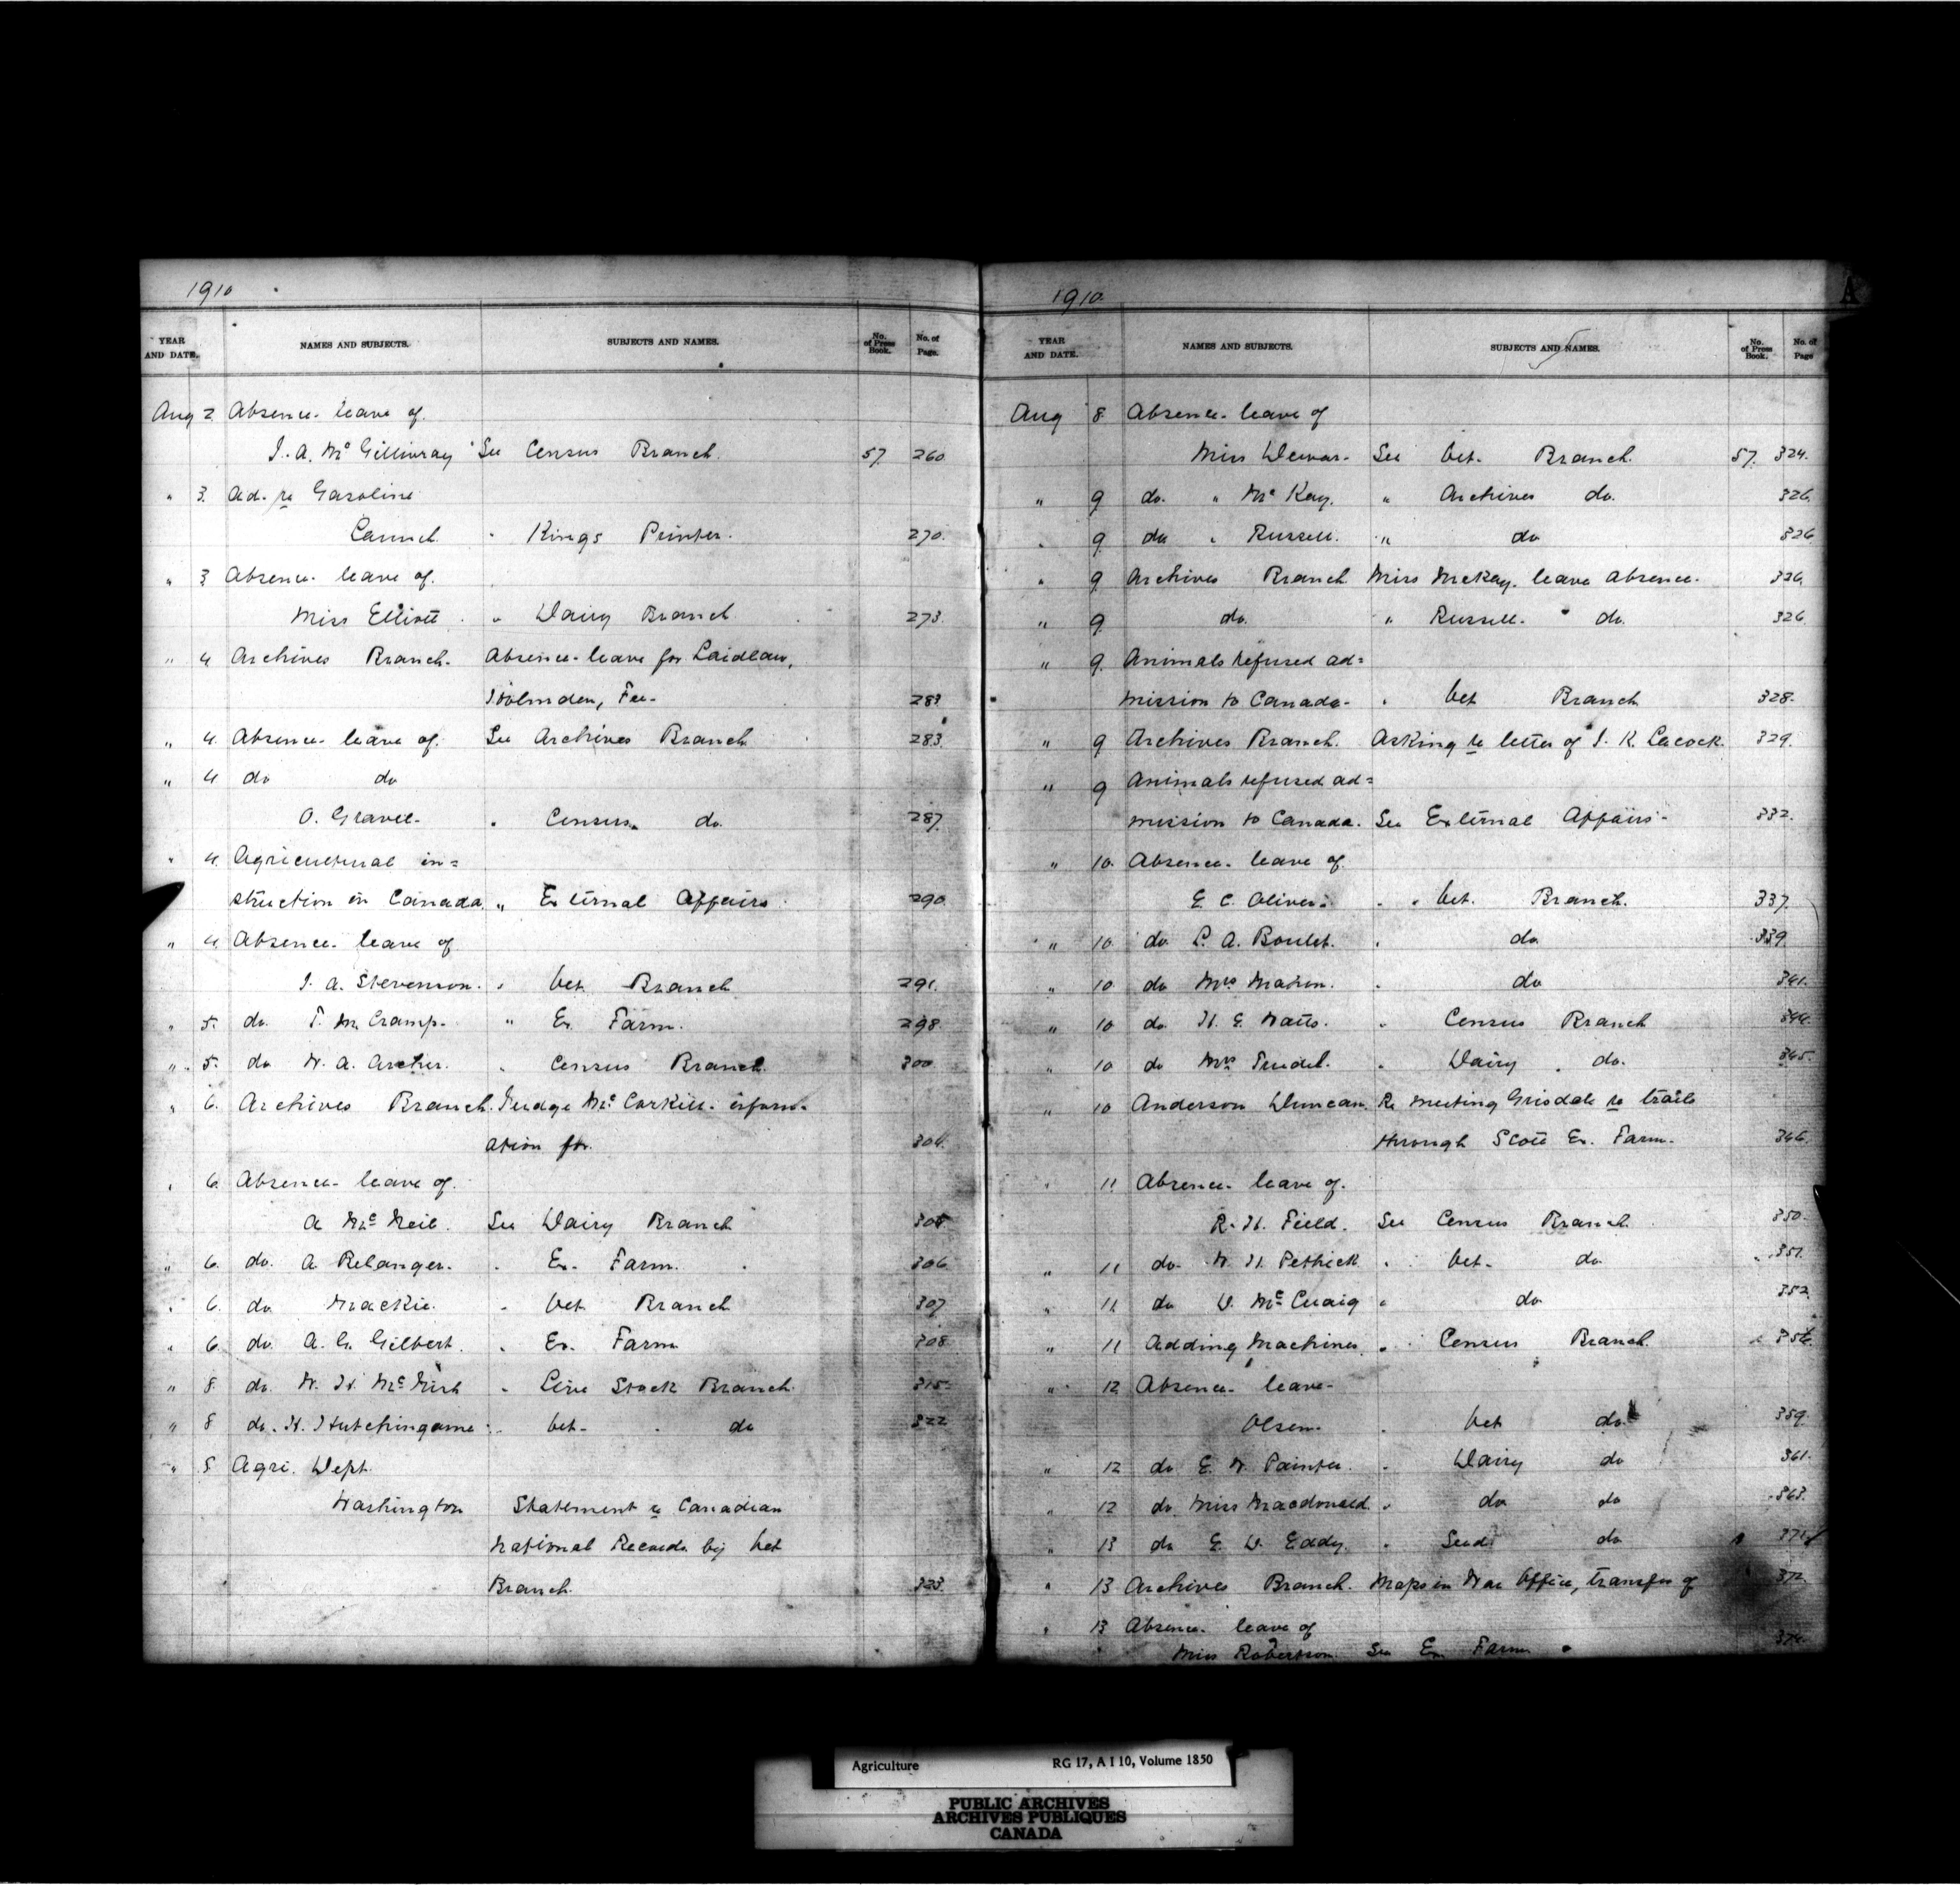 1910
YEAR AND DATE. NAMES AND SUBJECTS. SUBJECTS AND NAMES. No. of Press Book. No. of Page.
Aug 2 Absence- leave of.
J. A. McGillivray See Census Branch. 57. 260
" 3. Ad. re Gasoline
Launch. " Kings Printer. 270.
" 3 Absence- leave of.
Miss Elliott. " Dairy Branch. 273.
" 4 Archives Branch. Absence- leave for Laidlaw,
Holmden, Fee- 283
" 4. Absence- leave of. See Archives Branch 283.
" 4 do do
O. Gravel- " Census do. 287.
" 4. Agricultural in=
struction in Canada. " External Affairs. 290.
" 4. Absence- leave of
J. A. Stevenson. " Vet. Branch 291.
" 5. do. T. M. Cramp. " Ex. Farm. 298.
" 5. do W. A. Archer. " Census Branch. 300
" 6. Archives Branch. Judge McCorkill- inform-
ation for. 304.
" 6. Absence- leave of.
A McNeil. See Dairy Branch 305
" 6. do. A Belanger. " Ex. Farm. 306
" 6. do. Mackie. " Vet Branch 307
" 6. do. A. G. Gilbert. " Ex. Farm 308
" 8. do. W. H. McNish " Live Stock Branch. 315
" 8 do. H. Hutchingame " Vet- do 322
" 8 Agri. Dept.
Washington Statement re Canadian
National Records by Vet
Branch. 323.
1910. A
YEAR AND DATE. NAMES AND SUBJECTS. SUBJECTS AND NAMES. No. of Press Book. No. of Page
Aug 8. Absence- leave of
Miss Dewar- See Vet. Branch. 57. 324.
" 9 do. " McKay. " Archives do. 326.
" 9. do " Russell. " do 326
" 9 Archives Branch Miss McKay. leave absence. 326.
" 9. do. " Russell- " do. 326
" 9. Animals refused ad=
mission to Canada- " Vet Branch 328.
" 9 Archives Branch. Asking re letter of J. K. Lacock. 329.
" 9 Animals refused ad=
mission to Canada. See External Affairs- 332.
" 10. Absence- leave of
E. C. Oliver. " Vet. Branch. 337.
" 10. do L. A. Boulet. " do. 339
" 10. do Mrs Mahon. " do 341.
" 10 do H. E. Watts. " Census Branch 344.
" 10 do Mrs Trudel. " Dairy do. 345.
" 10 Anderson Duncan. Re meeting Grisdale re trails
through Scott Ex. Farm. 346.
" 11 Absence- leave of.
R. H. Field. See Census Branch. 350.
" 11 do- W. H. Pethick " Vet- do 351.
" 11. do D. McCuaig " do 352.
" 11 Adding Machines. " Census Branch. 356.
" 12 Absence- leave-
Olsen. " Vet do. 359.
" 12 do E. W. Painter. " Dairy do 361.
" 12 do Miss Macdonald. " do do 363.
" 13 do E. D. Eddy. " Seed do 371
" 13 Archives Branch. Maps in War Office, transfer of 372.
" 13 Absence- leave of
Miss Robertson. See Ex. Farm 374.
Agriculture RG 17, A I 10, Volume 1850
PUBLIC ARCHIVES
ARCHIVES PUBLIQUES
CANADA